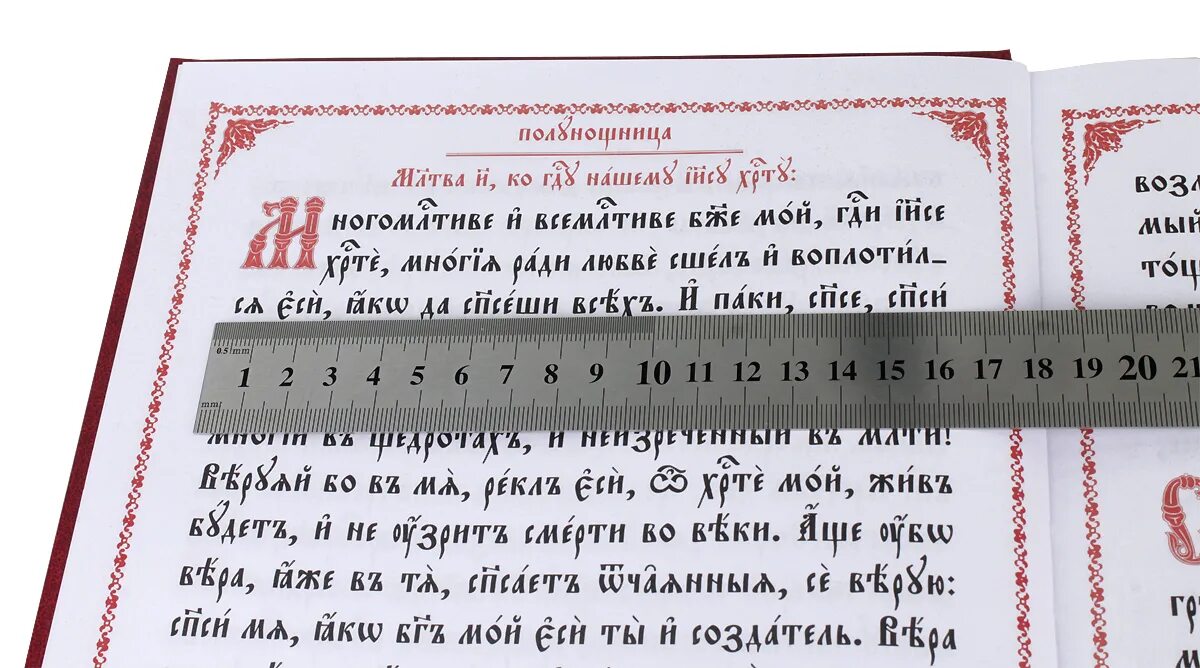 полꙋнощница
Мл҃тва и҃і, ко гдⷭ҇ꙋ нашемꙋ і҆и҃сꙋ хрⷭ҇тꙋ̀:
Многомлⷭ҇тиве и҆ всемлⷭ҇тиве бж҃е мо́й, гдⷭ҇и і҆и҃се
хрⷭ҇тѐ, мно́гїѧ ра́ди любвѐ сше́лъ и҆ воплоти́л_
сѧ є҆сѝ, ꙗ҆́кѡ да сп҃се́ши всѣ́хъ. И҆ па́ки, сп҃се, сп҃си́
0.5 mm
1 2 3 4 5 6 7 8 9 10 11 12 13 14 15 16 17 18 19 20 21
mm
мно́гїй въ щедро́тахъ, и҆ неизрече́нный въ мл҃ти!
Вѣ́рꙋѧй бо въ мѧ̀, ре́клъ є҆сѝ, ѽ хрⷭ҇тѐ мо́й, жи́въ
бꙋ́детъ, и҆ не ᲂу҆́зритъ сме́рти во вѣ́ки. А҆́ще ᲂу҆́бѡ
вѣ́ра, ꙗ҆́же въ тѧ̀, сп҃са́етъ ѿча̑ѧнныѧ, сѐ вѣ́рꙋю:
сп҃си́ мѧ, ꙗ҆́кѡ бг҃ъ мо́й є҆сѝ ты̀ и҆ созда́тель. Вѣ́ра
возл
мый
то́щ
гр